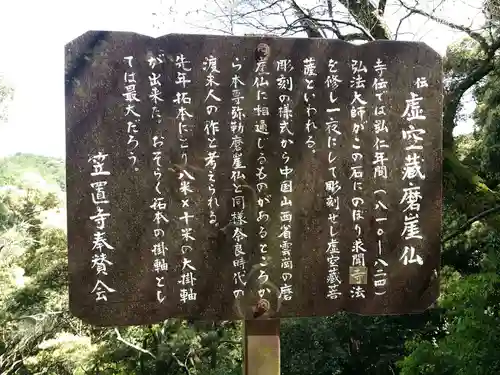 伝 虚空蔵磨崖仏
寺伝では弘仁年間(八一〇ー八二四)
弘法大師がこの石にのぼり求聞寺法
を修し一夜にして彫刻せし虚空蔵菩
薩といわれる。
彫刻の様式から中国山西省雲岡の磨
崖仏に相通じるものがあるところか
ら本尊弥勒磨崖仏と同様奈良時代の
渡来人の作と考えられる。
先年拓本により八米×十米の大掛軸
が出来た。おそらく拓本の掛軸とし
ては最大だろう。
笠置寺奉賛会